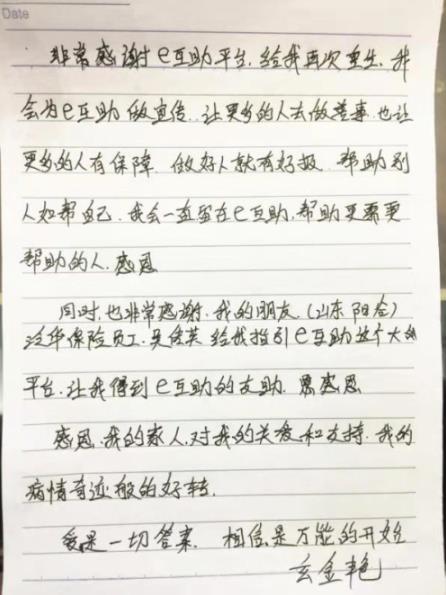 Date
非常感谢e互助平台,给我再次重生,我
会为e互助做宣传,让更多的人去做善事,也让
更多的人有保障,做好人就有好报,帮助别
人如帮自己,我会一直留在e互助,帮助更需要
帮助的人,感恩
同时,也非常感谢,我的朋友,(山东 阳谷)
泛华保险员工,吴 英 给我指引e互助这个大的
平台,让我得到e互助的友助,感恩
感恩,我的家人,对我的关爱和支持,我的
病情奇迹般的好转.
爱是一切答案, 相信是万能的开始
玄金艳